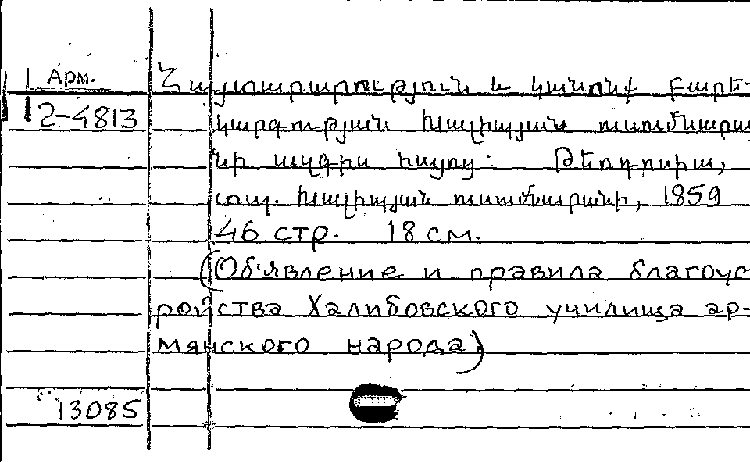 1 Арм.
2-4813
Հայտարարություն և կանոնք բարե-
կարգության Խալիպյան ուսումնարա
նի ազգիս հայոց: Թեոդոսիա,
տպ. Խալիպյան ուսումնարանի, 1859
46 стр. 18 см.
(Объявление и правила благоус-
ройства Халибовского училища ар-
мянского народа)
13085